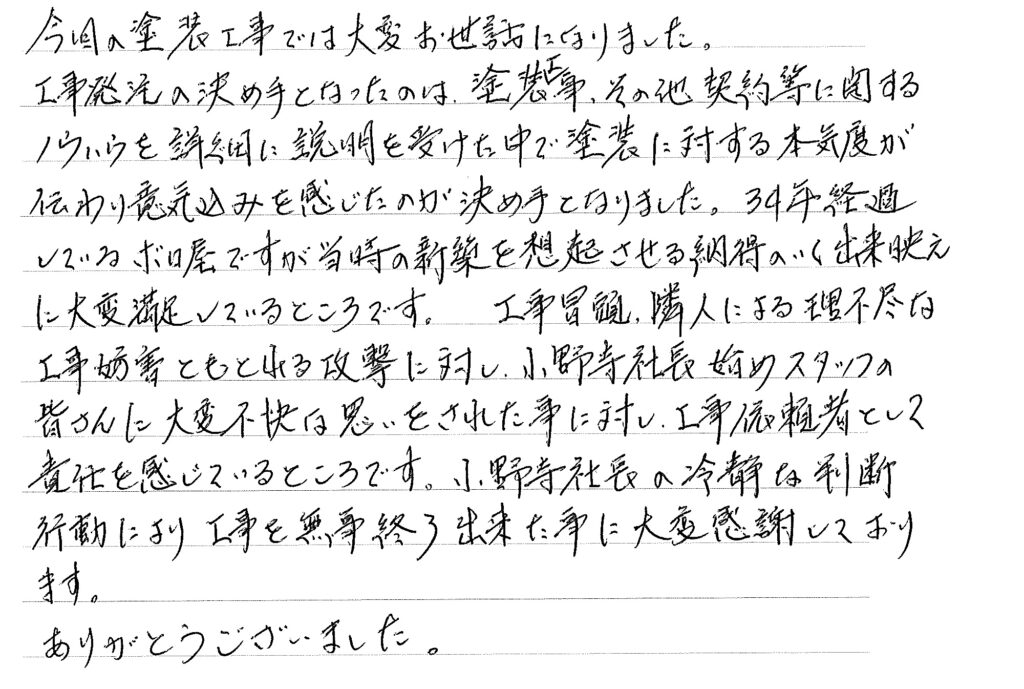 今回の塗装工事では大変お世話になりました。
工事発注の決め手となったのは、塗装工事、その他契約等に関する
ノウハウを詳細に説明を受けた中で塗装に対する本気度が
伝わり意気込みを感じたのが決め手となりました。34年経過
しているボロ屋ですが当時の新築を想起させる納得のいく出来映え
に大変満足しているところです。 工事冒頭、隣人による理不尽な
工事妨害ともとれる攻撃に対し、小野寺社長始めスタッフの
皆さんに大変不快な思いをされた事に対し、工事依頼者として
責任を感じているところです。小野寺社長の冷静な判断
行動により工事を無事終了出来た事に大変感謝しており
ます。
ありがとうございました。